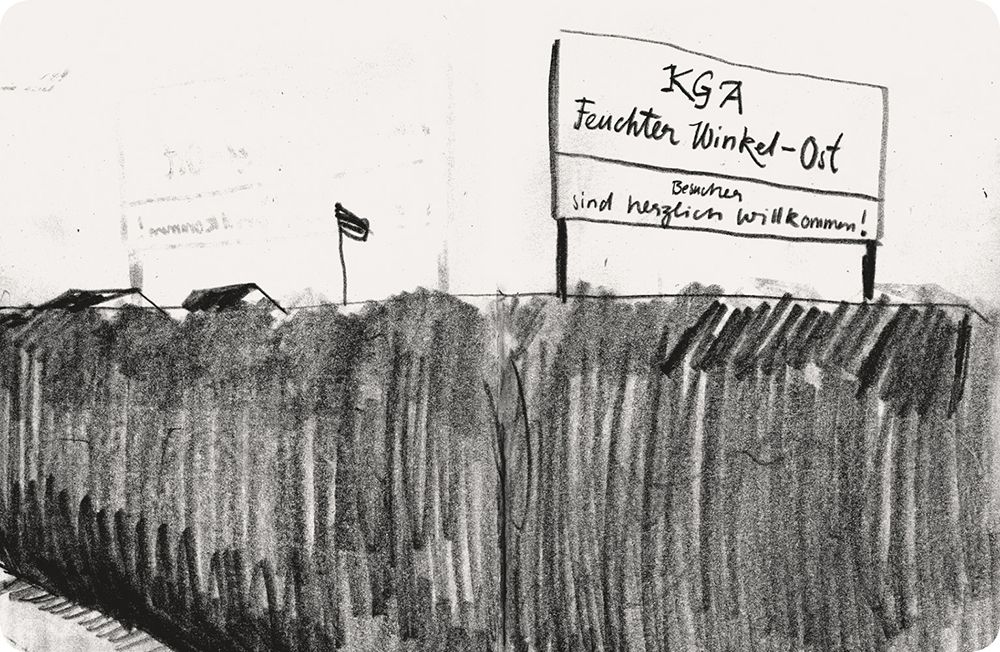 KGA
Feuchter Winkel-Ost
Besucher
sind herzlich willkommen!